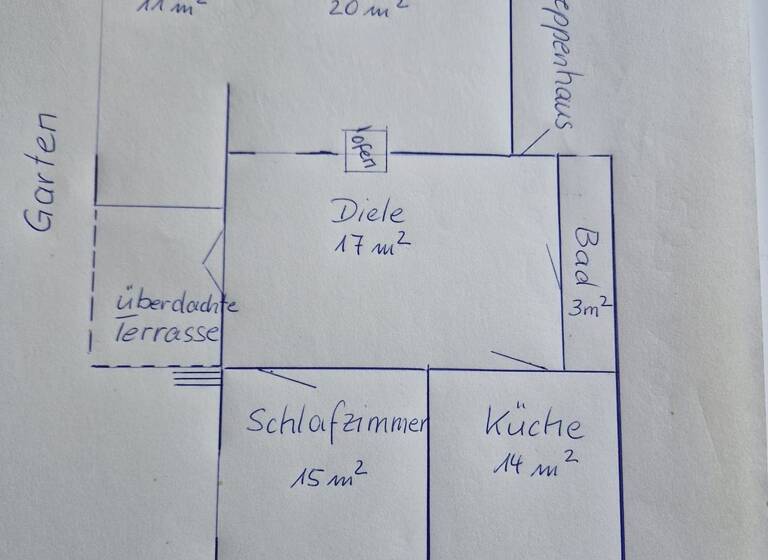 11 m²
20 m²
eppenhaus
Garten
ofen
Diele
17 m²
Bad
3m²
überdachte
Terrasse
Schlafzimmer
15 m²
Küche
14 m²